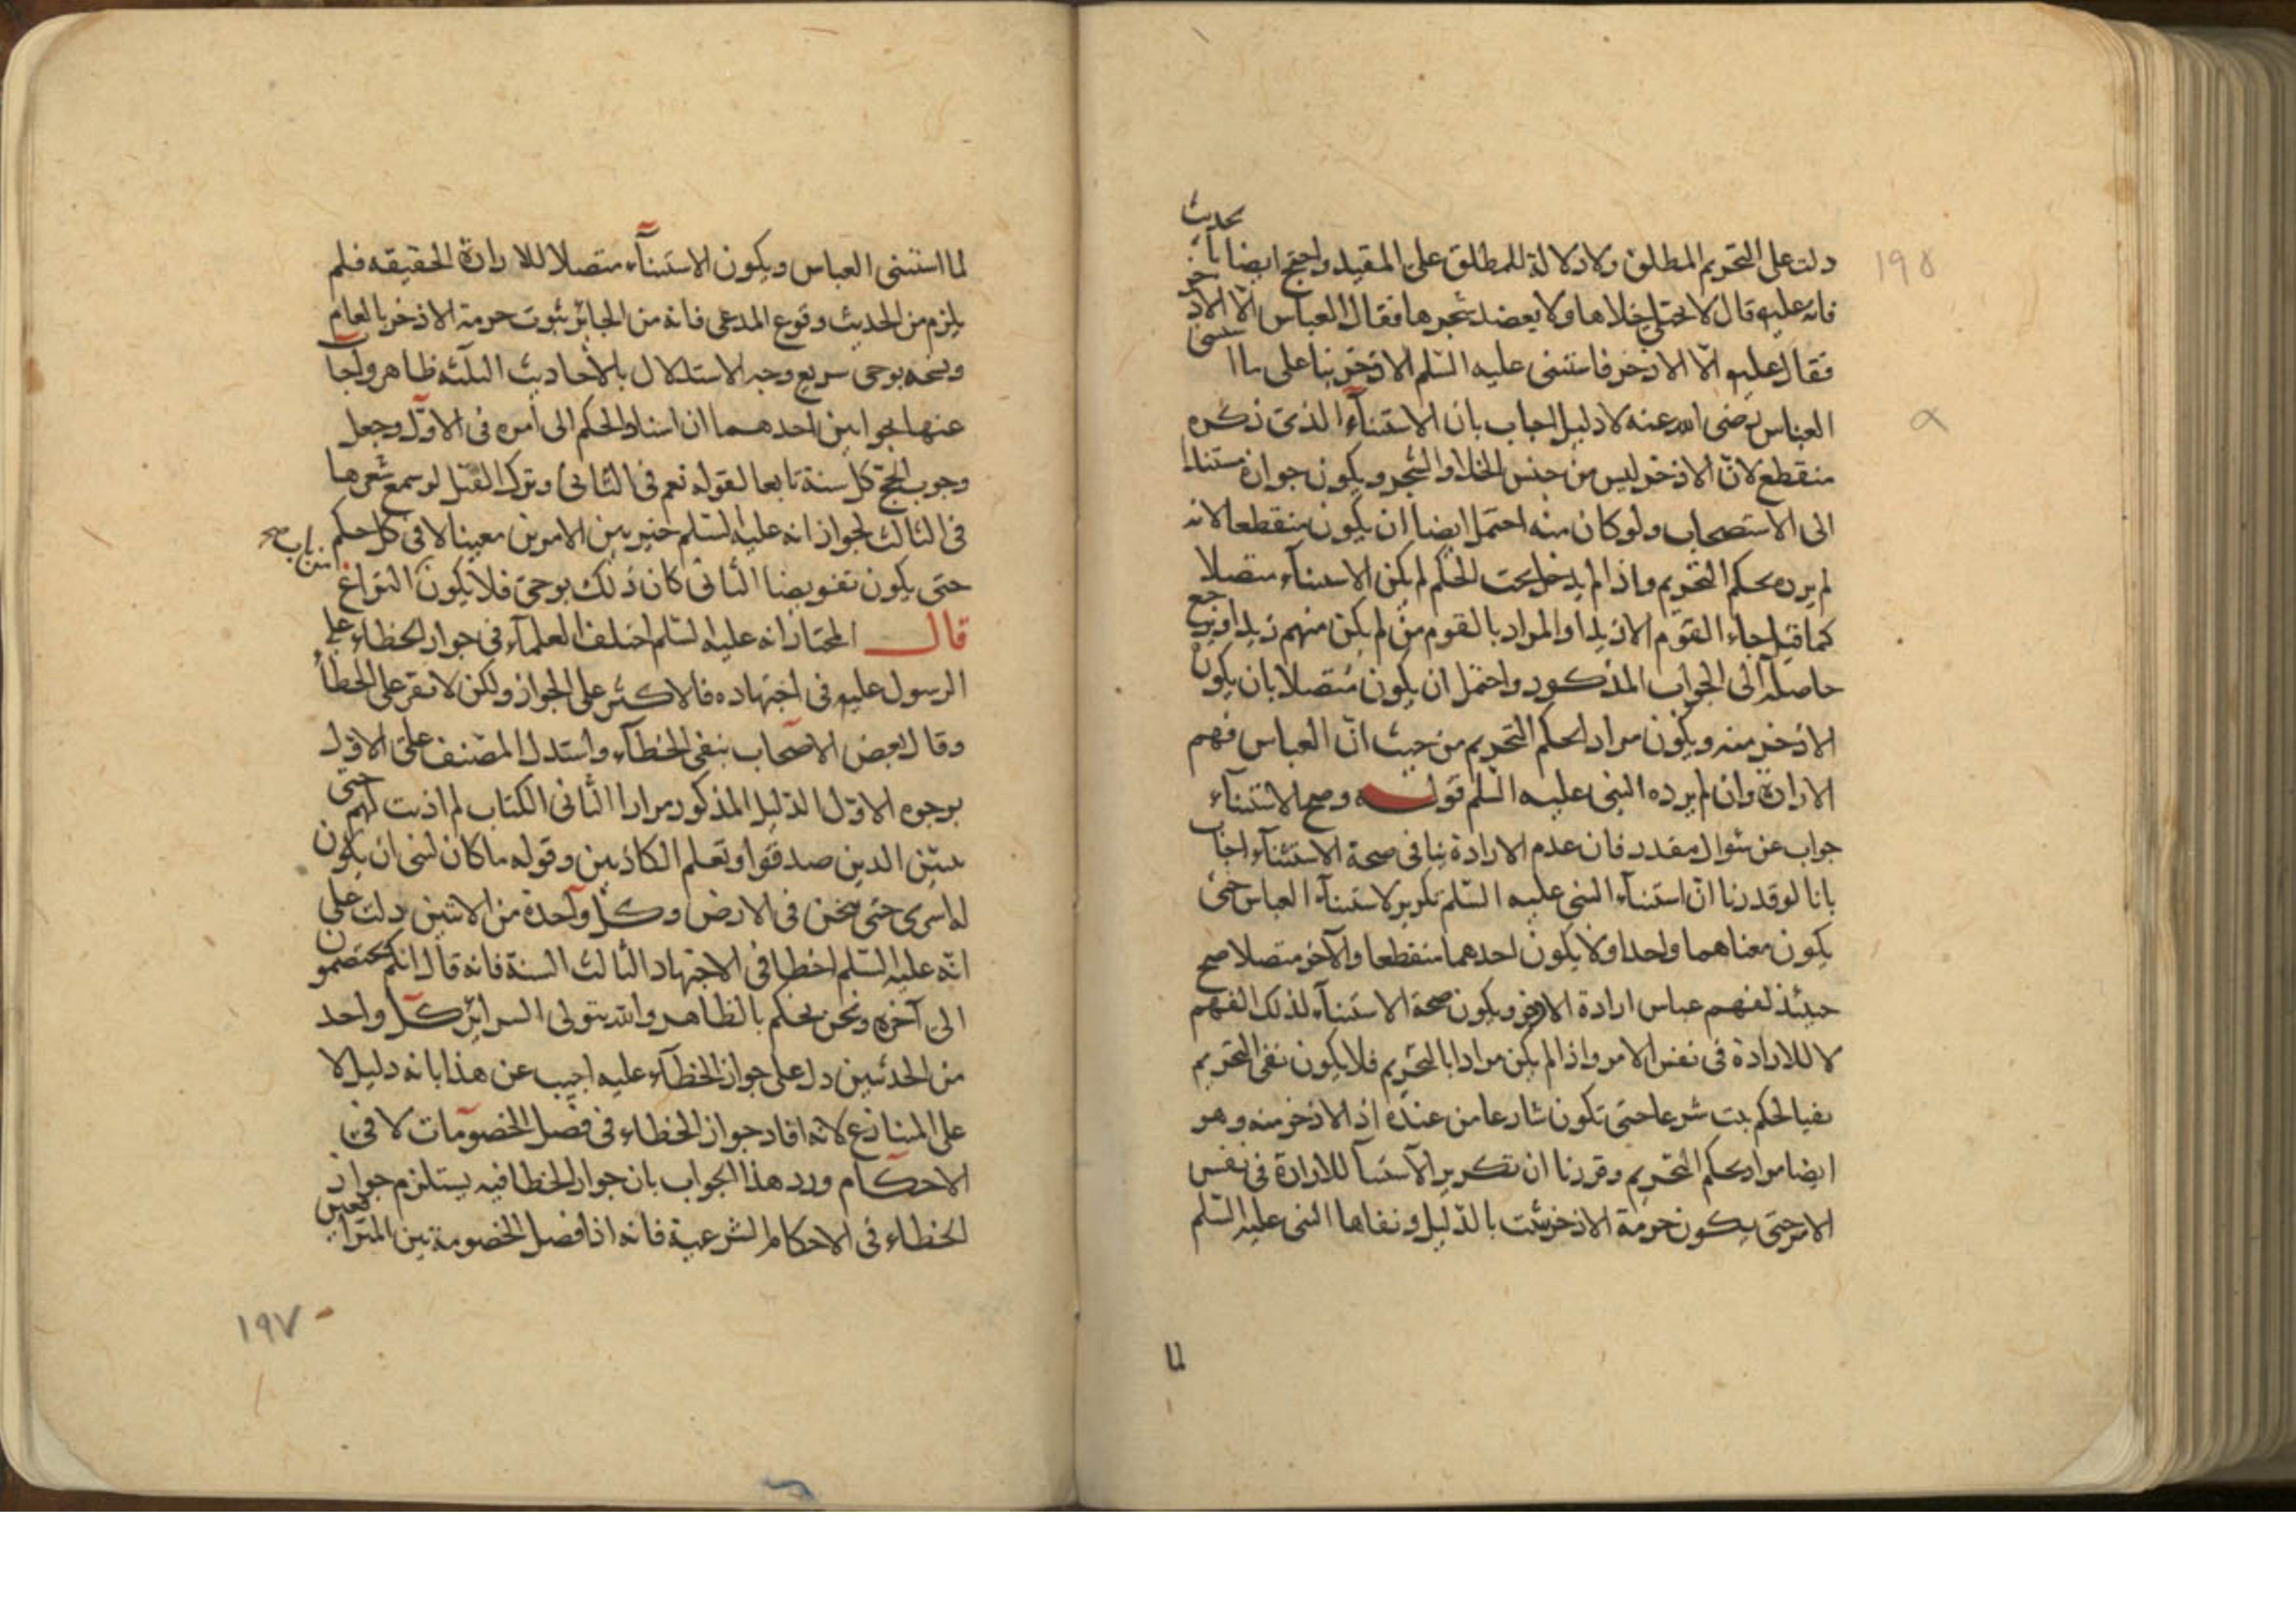 دلت على التحريم المطلق ولا دلالة للمطلق على المقيد واحتج ايضا بانه بحديث
فانه عليه قال لا يختلى خلاها ولا يعضد شجرها فقال العباس الا الاذخر
فقال عليه الا الاذخر فاستثنى عليه السلم الاذخر بنا على ما استثنى
العباس رضى الله عنه لا دليل اجاب بان الاستثناء الذى ذكره
منقطع لان الاذخر ليس من جنس الخلا والشجر ويكون جوازه مستندا
الى الاستصحاب ولو كان منه احتمل ايضا ان يكون منقطعا لانه
لم يرده بحكم التحريم واذا لم يدخل تحت الحكم لم يكن الاستثناء متصلا
كما قيل جاء القوم الا زيدا والمراد بالقوم من لم يكن منهم زيد او يرجع
حاصله الى الجواب المذكور واحتمل ان يكون متصلا بان يكون
الاذخر منه ويكون مراد الحكم التحريم من حيث ان العباس فهم
الارادة وان لم يرده النبى عليه السلم قوله وصح الاستثناء
جواب عن سؤال مقدر فان عدم الارادة ينافى صحة الاستثناء اجاب
بانا لو قدرنا ان استثناء النبى عليه السلم تكرير لاستثناء العباس حتى
يكون معناهما واحدا ولا يكون احدهما منقطعا والآخر متصلا صح
حينئذ لفهم عباس ارادة الاذخر ويكون صحة الاستثناء لذلك الفهم
لا للارادة فى نفس الامر واذا لم يكن مرادا بالتحريم فلا يكون نفى التحريم
نفيا لحكم ثبت شرعا حتى تكون شارعا من عنده اذ الاذخر منه وهو
ايضا مراد بحكم التحريم وقررنا ان تكرير الاستثنا للارادة فى نفس
الامر حتى يكون حرمة الاذخر يثبت بالدليل ونفاها النبى عليه السلم
لما
١٩٥
لما استثنى العباس ويكون الاستثناء متصلا للارادة الحقيقه فلم
يلزم من الحديث وقوع المدعى فانه من الجائز ثبوت حرمة الاذخر بالعام
ونسخه بوحى سريع وجه الاستدلال بالأحاديث الثلثه ظاهر واجاب
عنها بجوابين احدهما ان اسناد الحكم الى أمره فى الاول وجعل
وجوب الحج كل سنة تابعا لقوله نعم فى الثانى وترك القتل لو سمع شعرها
فى الثالث لجواز انه عليه السلم خير بين الامرين معينا لا فى كل حكم
حتى يكون تفويضا الثانى كان ذلك بوحى فلا يكون النزاع من باب صح
قال المختار انه عليه السلم اختلف العلماء فى جواز الخطاء على
الرسول عليه فى اجتهاده فالاكثر على الجواز ولكن لا تقر على الخطأ
وقال بعض الاصحاب بنفى الخطاء واستدل المصنف على الاول
بوجوه الاول الدليل المذكور مرارا الثانى الكتاب لم اذنت لهم حتى
يتبين الذين صدقوا وتعلم الكاذبين وقوله ما كان لنبى ان يكون
له اسرى حتى يثخن فى الارض وكل واحدة من الاثنين دلت على
انه عليه السلم اخطا فى الاجتهاد الثالث السنة فانه قال انكم تختصمون
الى آخره ونحن نحكم بالظاهر والله يتولى السرائر كل واحد
من الحدثين دل على جواز الخطاء عليه اجيب عن هذا بانه دليل لا
على المتنازع لانه افاد جواز الخطاء فى فصل الخصومات لا فى
الاحكام ورد هذا الجواب بان جواز الخطا فيه يستلزم جواز
الخطاء فى الاحكام الشرعية فانه اذا فصل الخصومة بين المترافعين
١٩٧